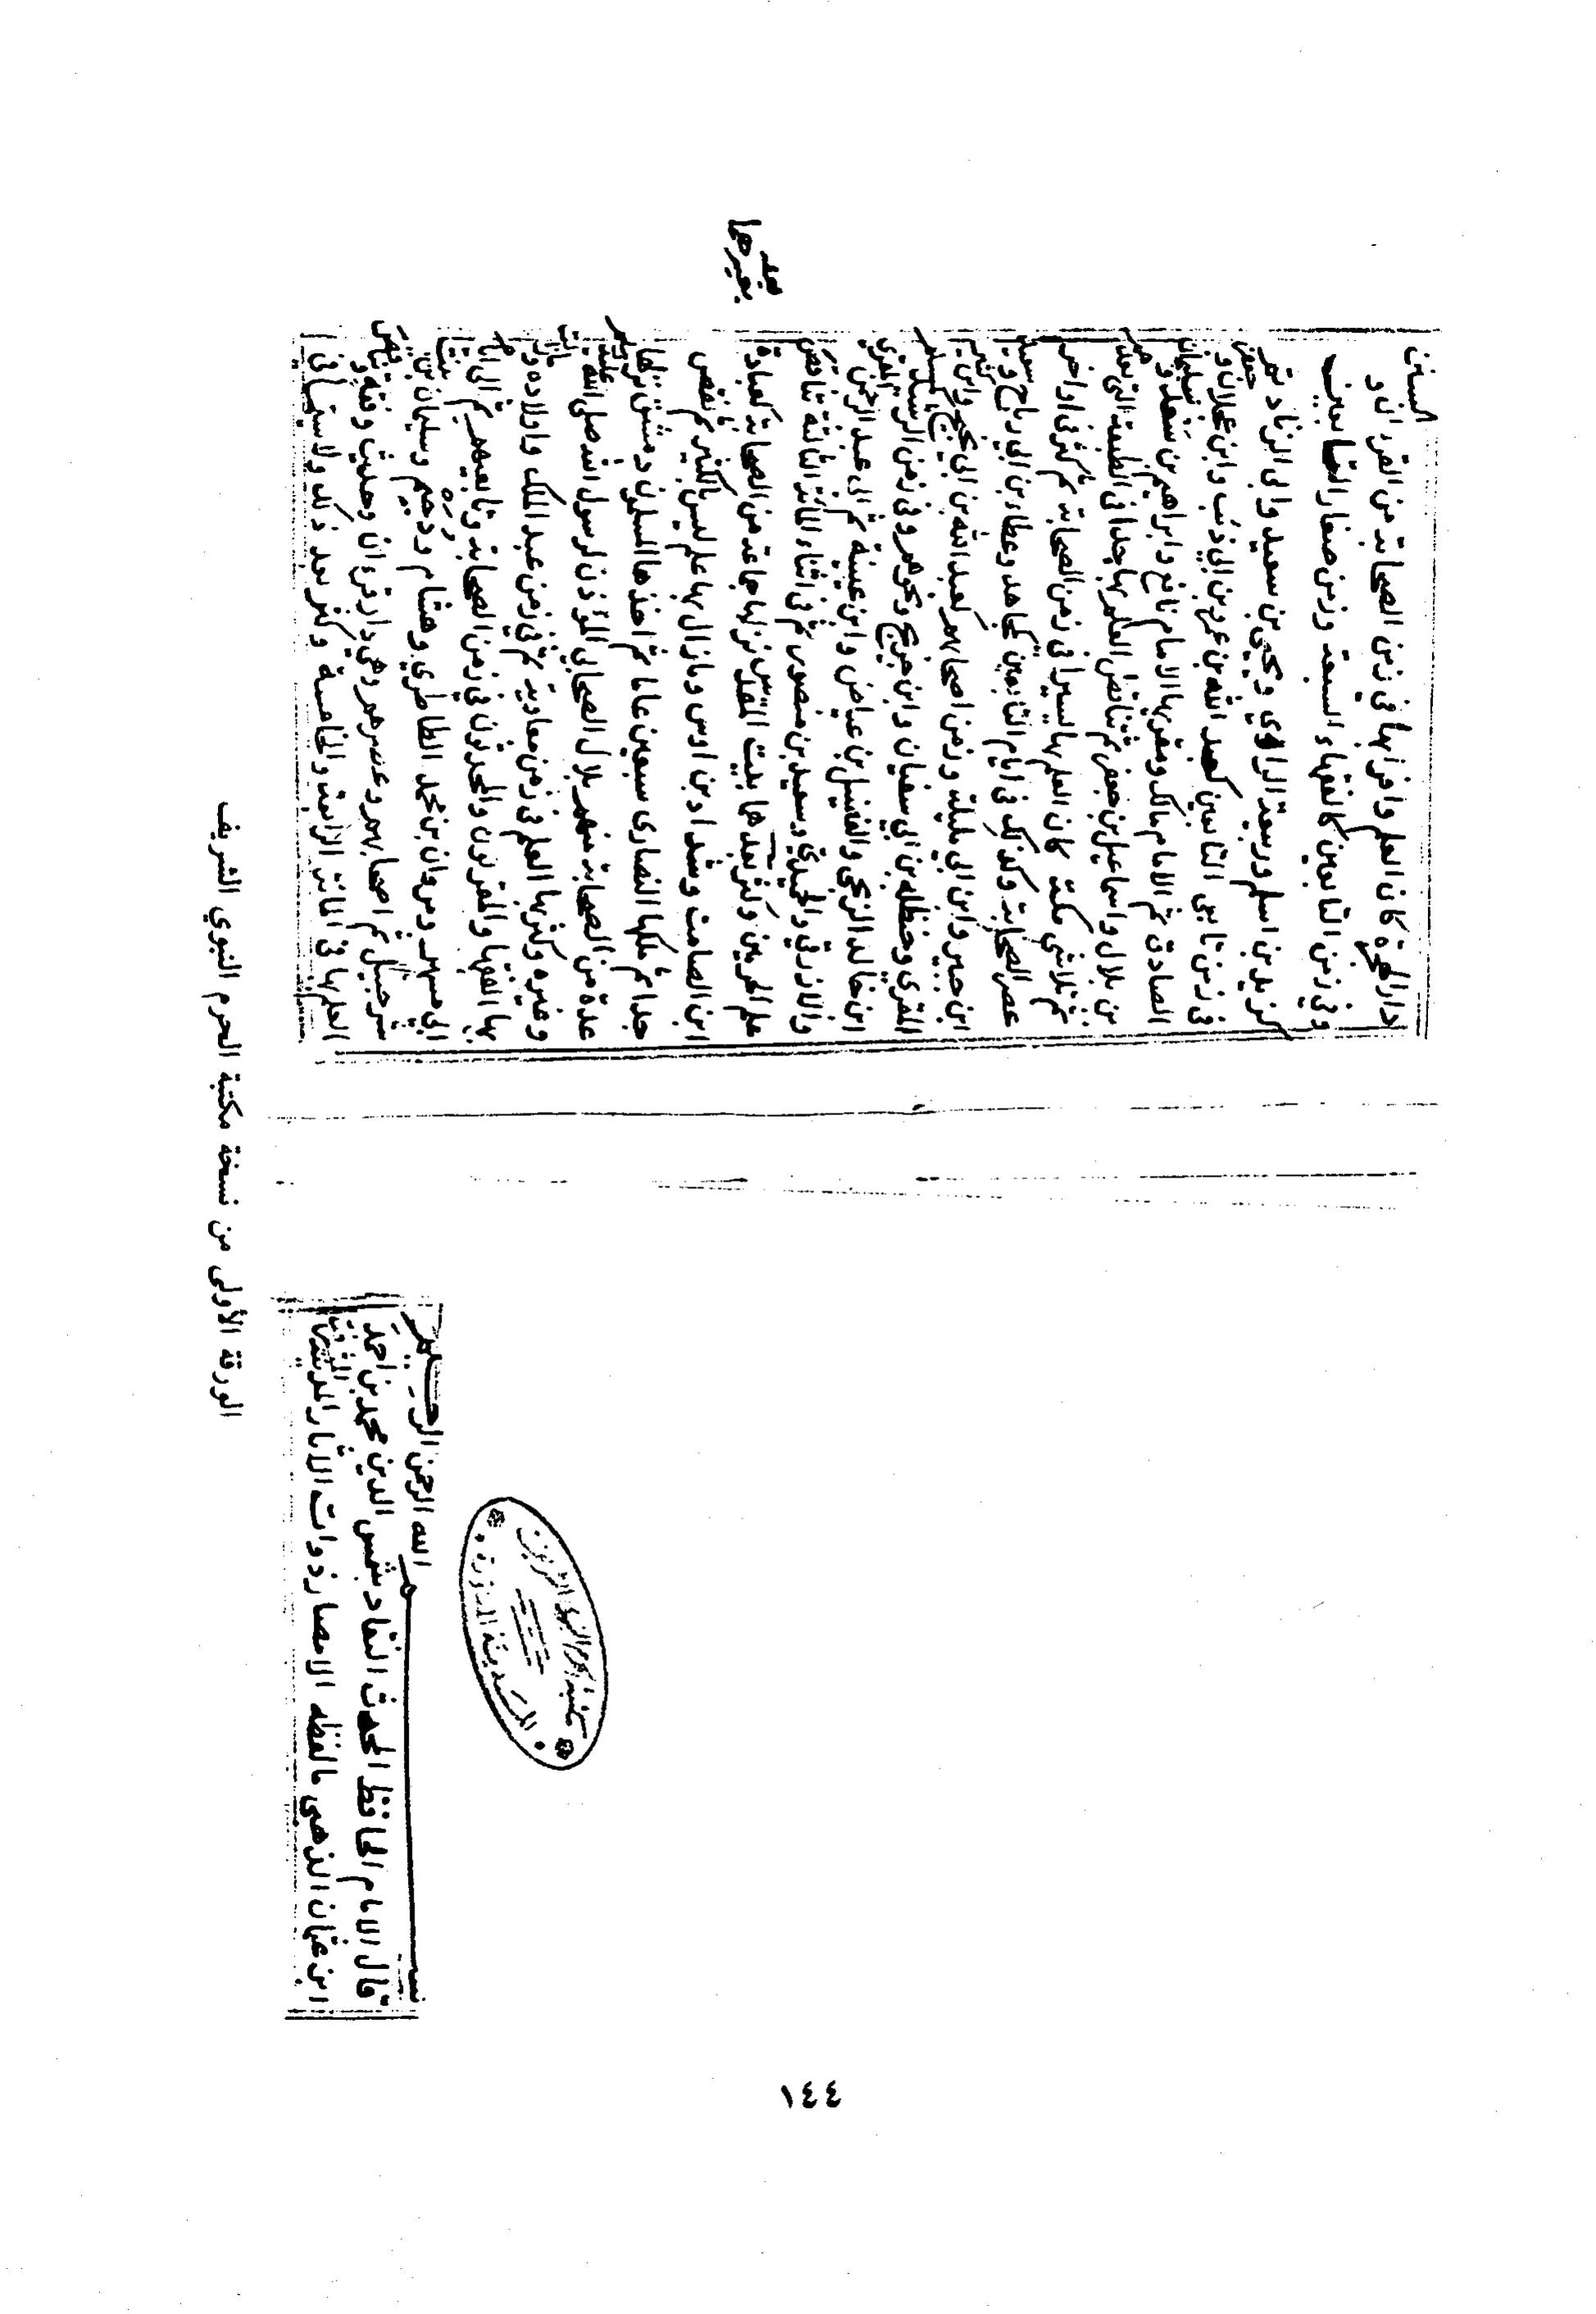 الله الرحمن الرحيم
قال الامام الحافظ المحدث النقاد شمس الدين محمد بن احمد
ابن عثمان الذهبي ما لفظه الامصار ذوات الاثار المدينة
المشرفة
دار الهجرة كان العلم وافرا بها في زمن الصحابة من القران و
السنن
وفي زمن التابعين كالفقهاء السبعة وزمن صغار التابعين
كزيد بن اسلم وربيعة الراي ويحيى بن سعيد وابي الزناد ثم
في زمن تابعي التابعين كعبد الله بن عمر وابن ابي ذئب وابن عجلان و
جعفر
الصادق ثم الامام مالك ومقريها الامام نافع وابراهيم بن سعد و
سليمان
بن بلال واسماعيل بن جعفر ثم تناقص العلم بها جدا في الطبقة التي بعد
هم
ثم تلاشى مكة كان العلم بها يسيرا في زمن الصحابة ثم كثر في اواخر
عصر الصحابة وكذلك في ايام التابعين كمجاهد وعطاء بن ابي رباح و
سعيد
ابن جبير وابن ابي مليكة وزمن اصحابهم كعبد الله بن ابي نجيح وابن
كثير
المقري وحنظلة بن ابي سفيان وابن جريج ونحوهم وفي زمن الرشيد
كمسلم
ابن خالد الزنجي والفضيل بن عياض وابن عيينة ثم ابي عبد الرحمن
المقري
والازرقي والحميدي وسعيد بن منصور ثم في اثناء المائة الثالثة تناقص
علم الحرمين وكثر بغيرهما بيت المقدس نزلها جماعة من الصحابة كعبادة
بغيرهما
ابن الصامت وشداد بن اوس ومازال بها علم ليس بالكثير ثم نقص
جدا ثم ملكها النصارى سبعين عاما ثم اخذها المسلمون دمشق نزلها
عدة من الصحابة منهم بلال الصحابي المؤذن لرسول الله صلى الله
عليه وسلم
وغيره وكثر بها العلم في زمن معاوية ثم في زمن عبد الملك واولاده و
مازال
بها الفقها والمقرئون والمحدثون في زمن الصحابة وتابعيهم ثم الى ايام
ابي مسهر ومروان بن محمد الطاطري وهشام ودحيم وسليمان بن
بنت
شرحبيل ثم اصحابهم وعصرهم وهي دار قران وحديث وفقه و
تناقص
العلم بها في المائة الرابعة والخامسة وكثر بعد ذلك ولا سيما في
مكتبة الحرم النبوي الشريف
المدينة المنورة
الورقة الأولى من نسخة مكتبة الحرم النبوي الشريف
١٤٤